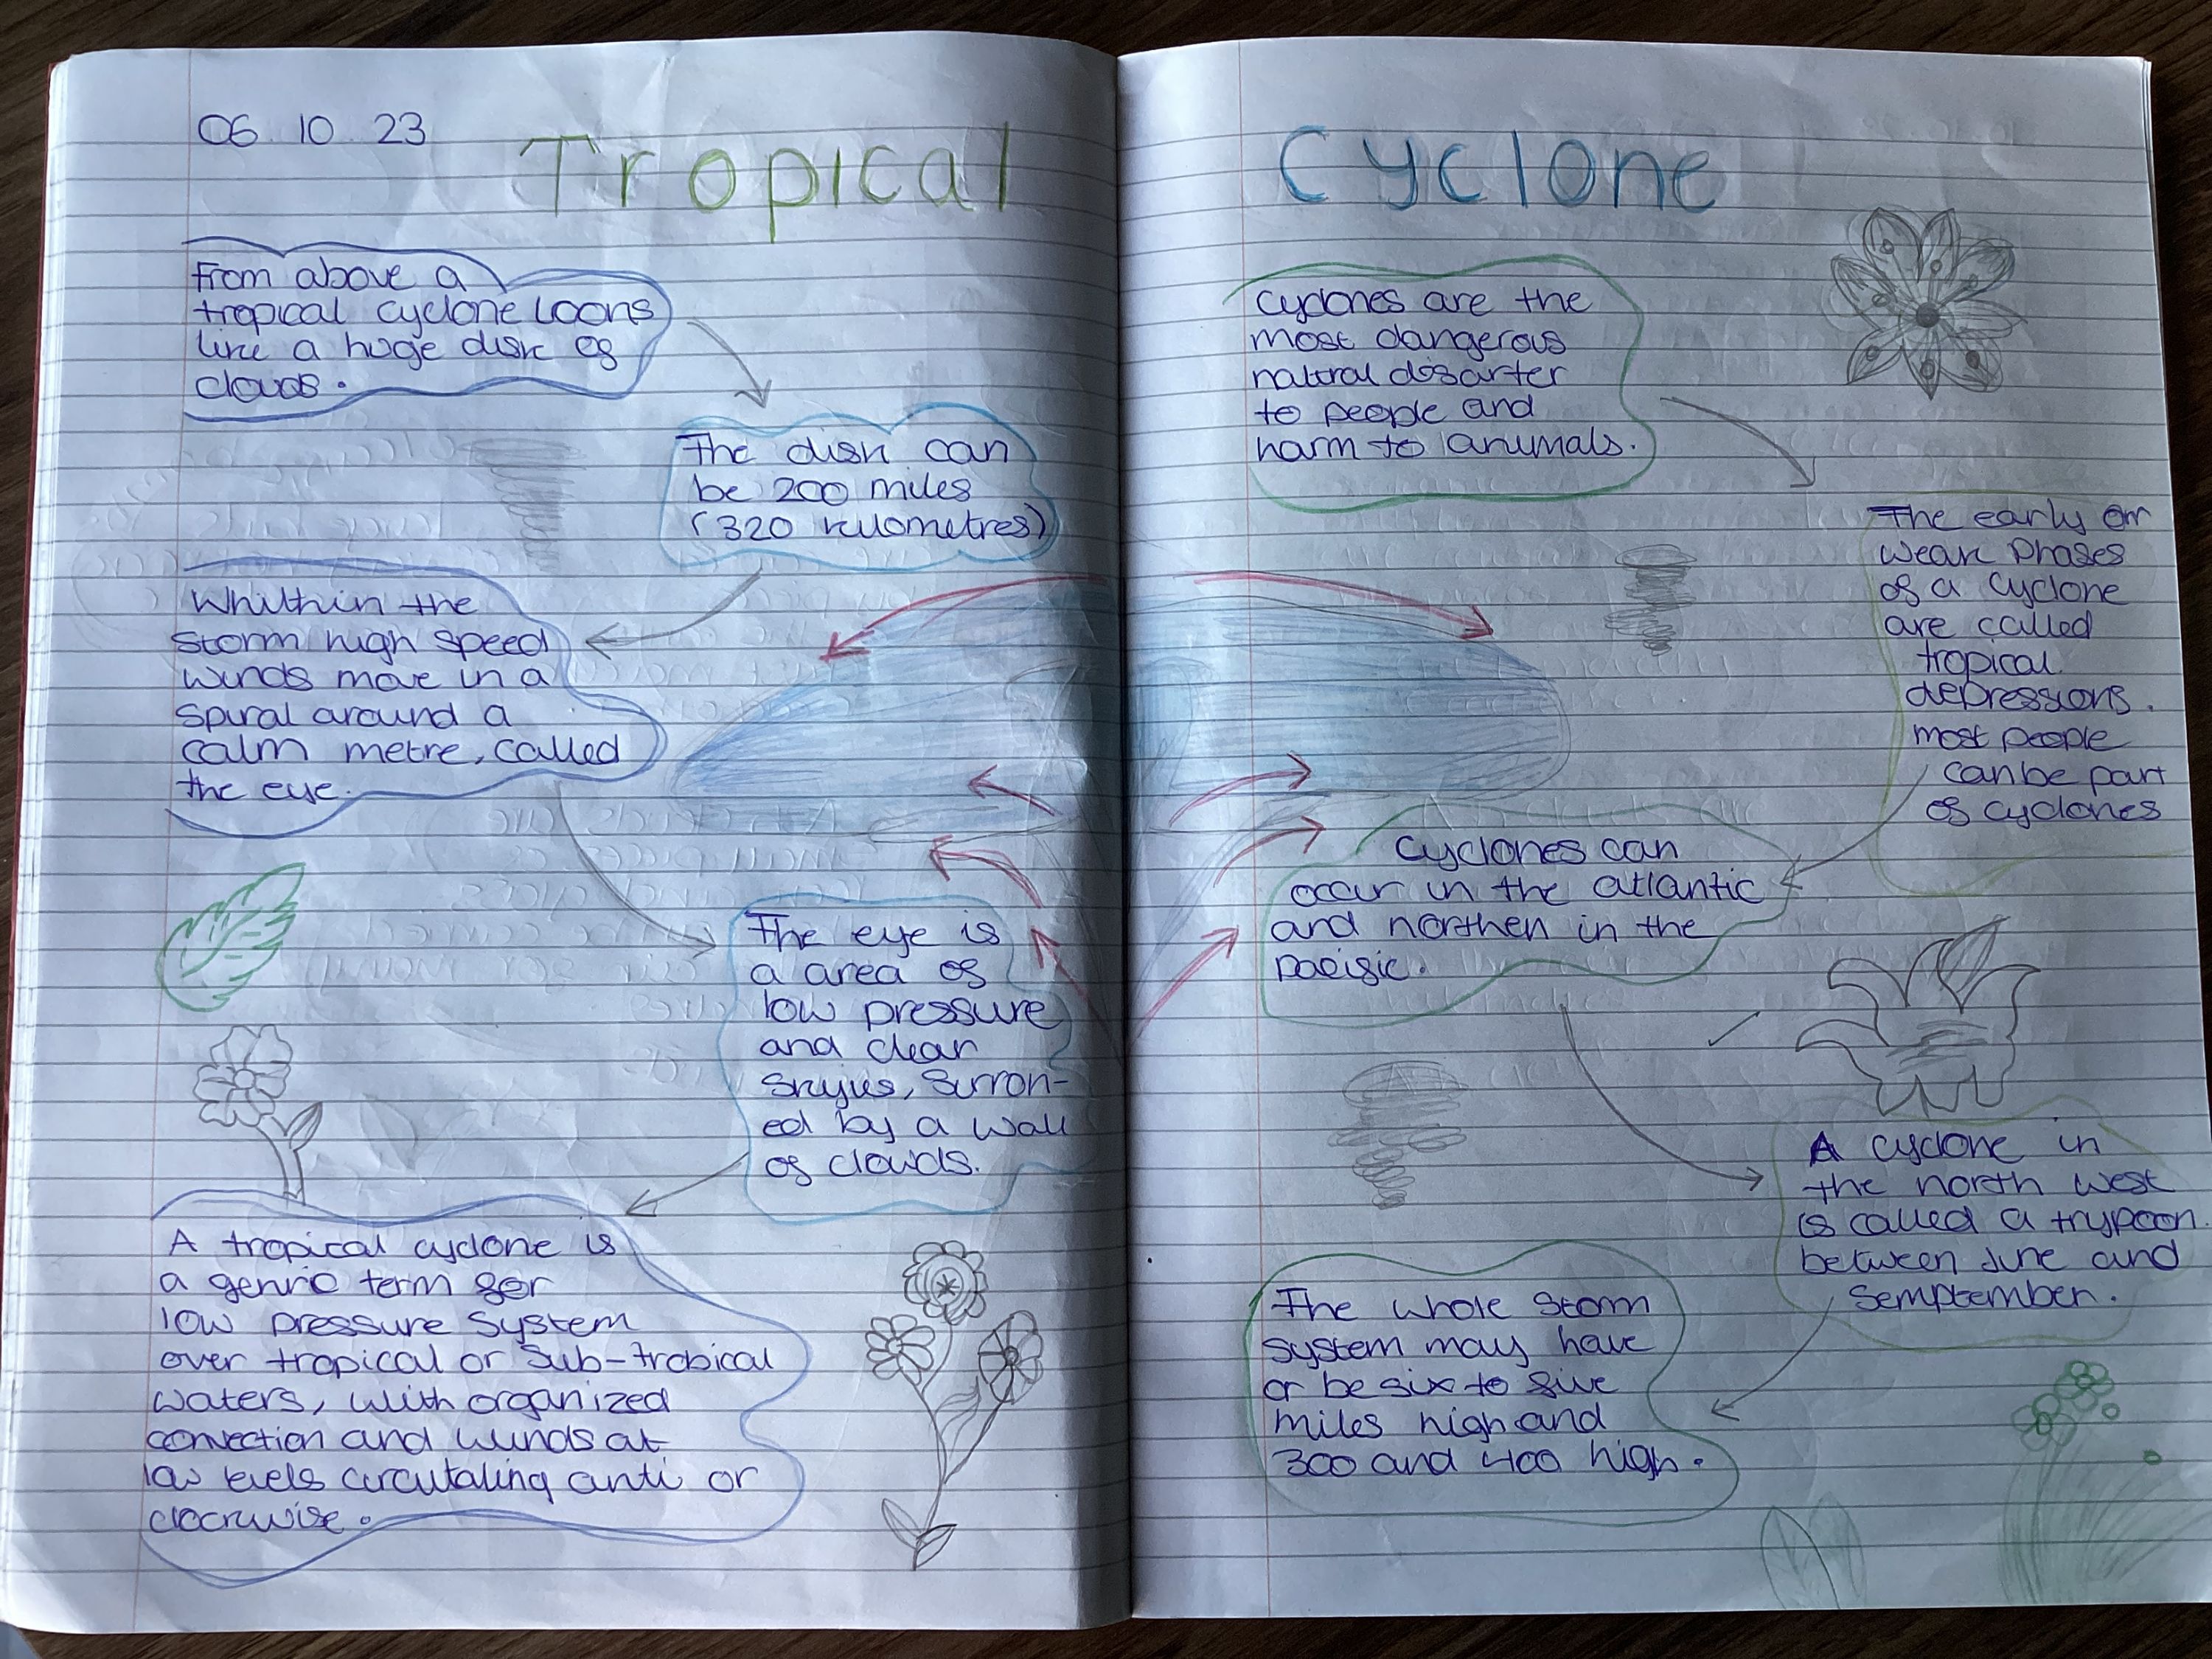 06.10.23
Tropical Cyclone
From above a
tropical cyclone looks
like a huge disk of
clouds.
The disk can
be 200 miles
(320 kilometres)
Whithin the
storm high speed
winds move in a
spiral around a
calm metre, called
the eye.
The eye is
a area of
low pressure
and clear
skyies, surron-
ed by a wall
of clouds.
A tropical cyclone is
a genric term for
low pressure system
over tropical or sub-trobical
waters, with organized
convection and winds at
low levels circutaling anti or
clockwise.
Cyclones are the
most dangerous
natral disarter
to people and
harm to animals.
The early or
weak phases
of a cyclone
are called
tropical
depressions.
most people
can be part
of cyclones
Cyclones can
occur in the atlantic
and northen in the
pacific.
A cyclone in
the north west
is called a trypoon.
between June and
Semptember.
The whole storm
system may have
or be six to five
miles high and
300 and 400 high.